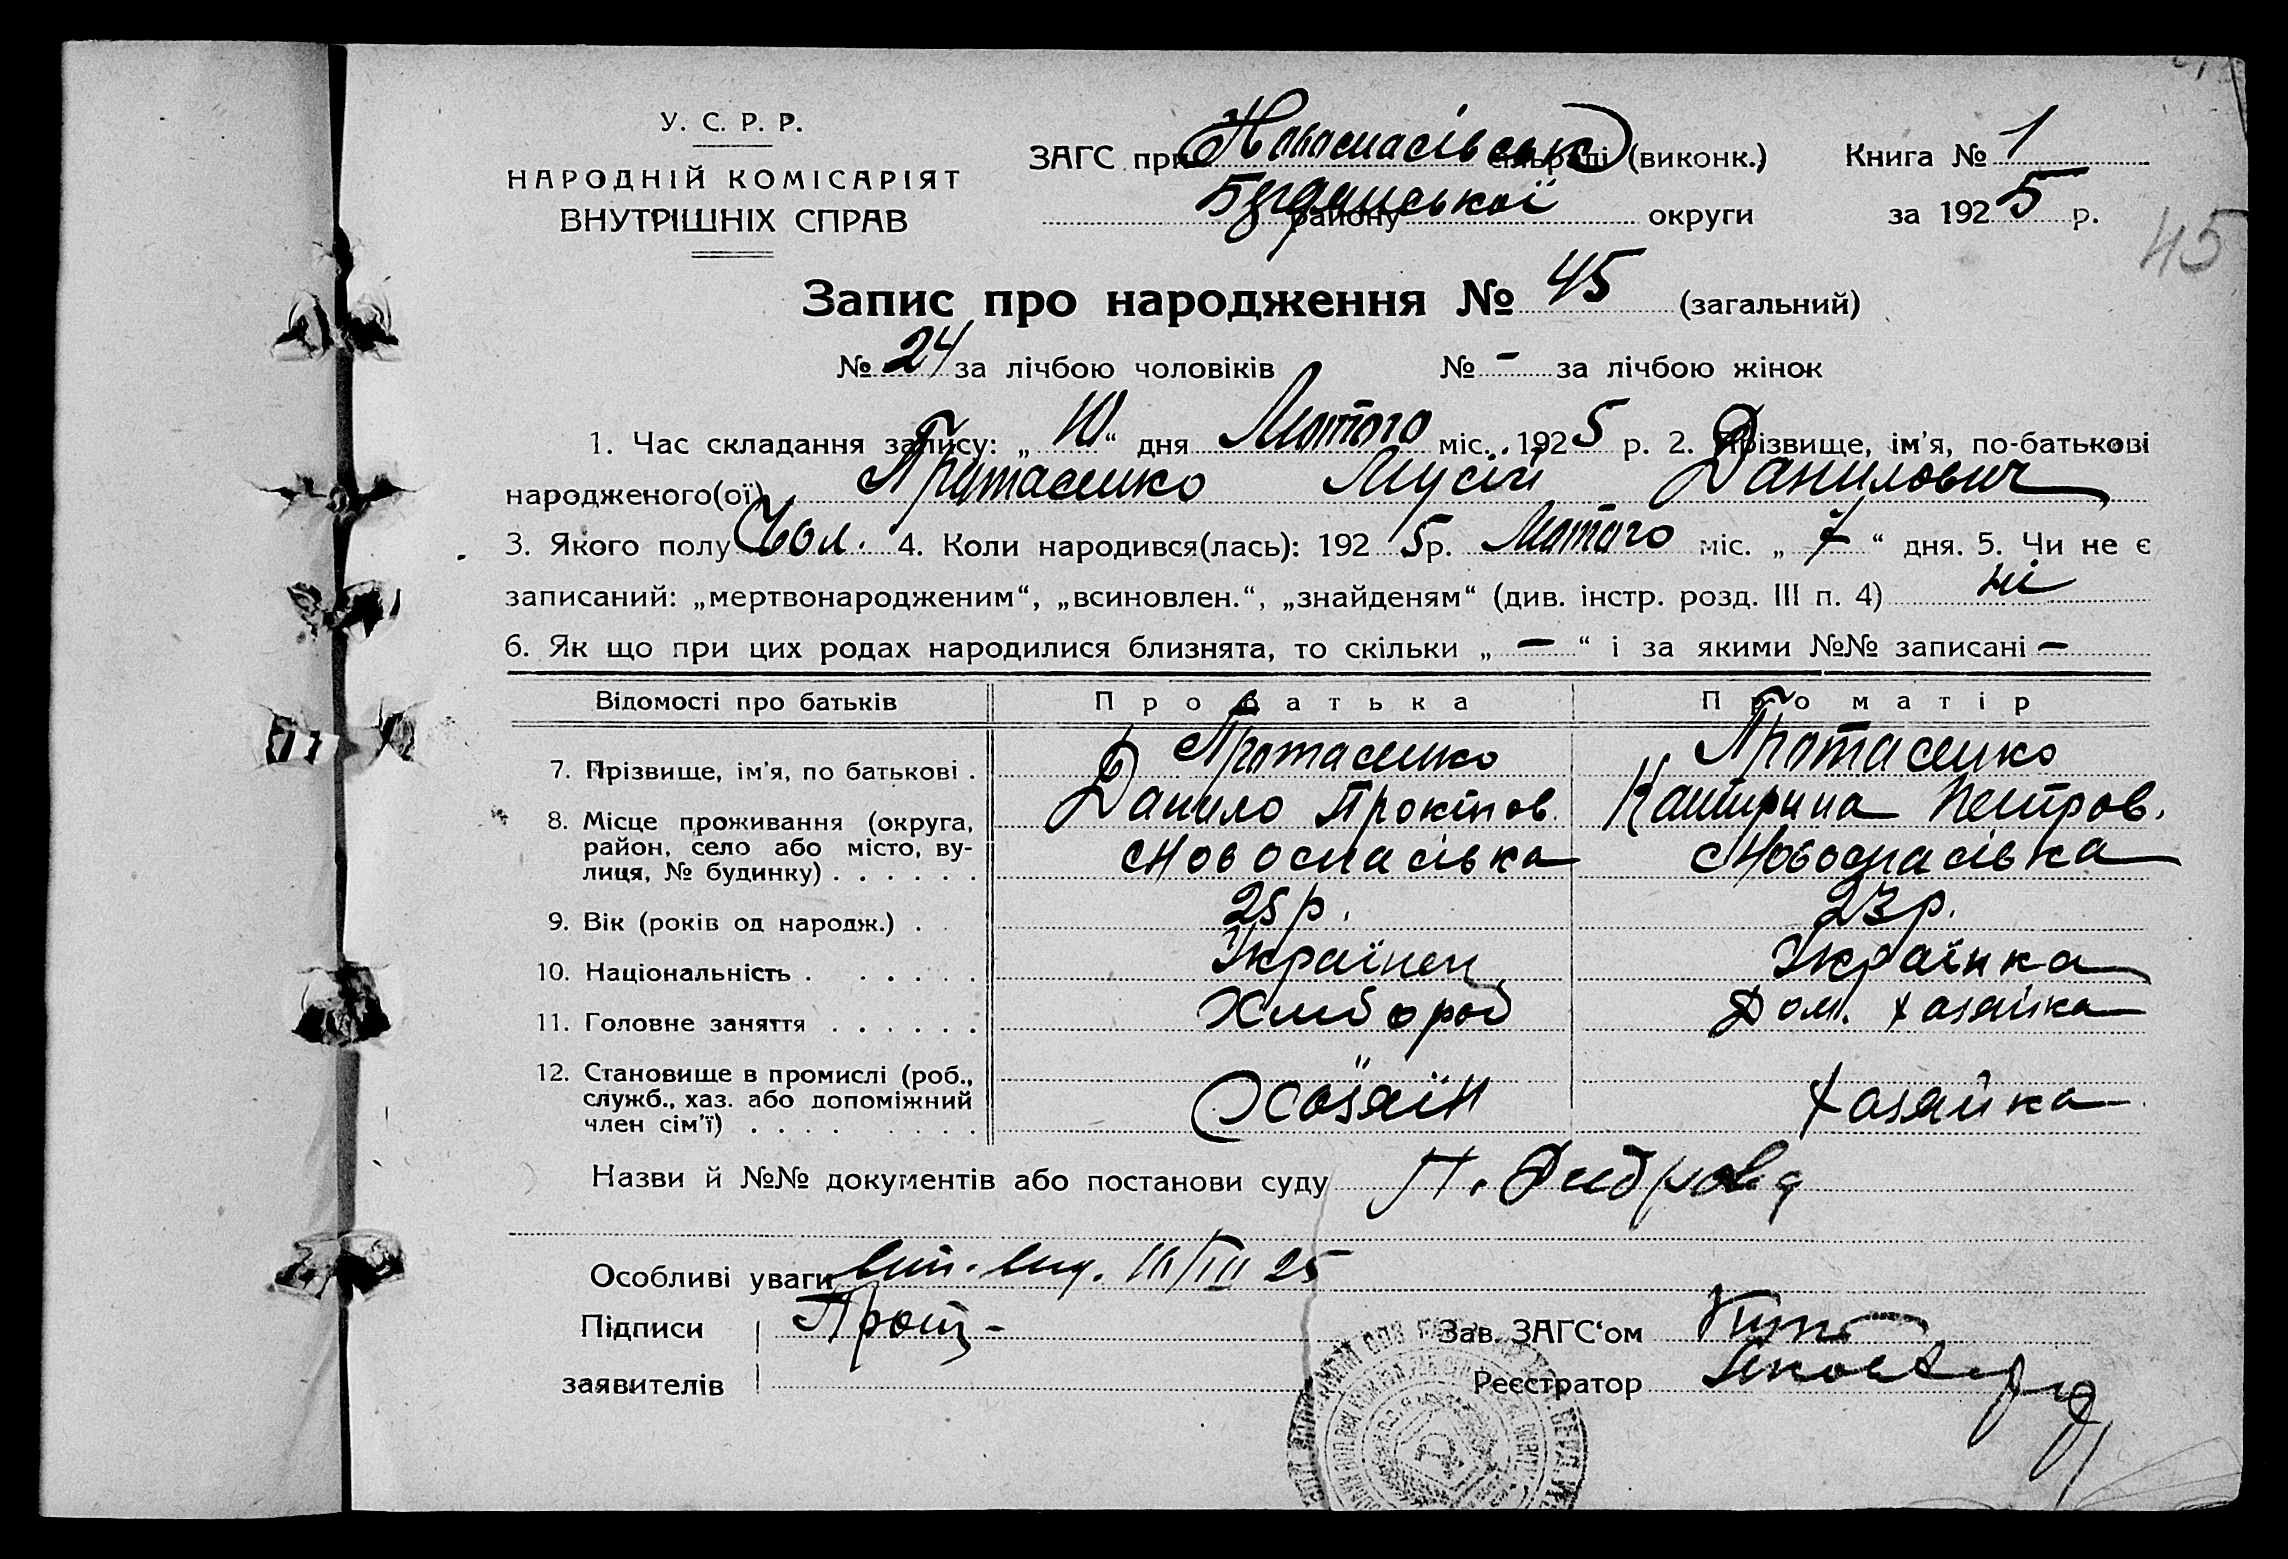 У. С. Р. Р.
НАРОДНІЙ КОМІСАРІЯТ
ВНУТРІШНІХ СПРАВ
ЗАГС при Новоспасівськ сільраді (виконк.)
району округи
Книга № 1
за 1925 р.
45
Запис про народження № 45 (загальний)
№ 24 за лічбою чоловіків № – за лічбою жінок
1. Час складання запису: „ 10 “ дня Лютого міс. 1925 р. 2. Прізвище, ім'я, по-батькові
народженого(ої) Протасенко Мусій Данилович
3. Якого полу Чол. 4. Коли народився(лась): 1925 р. Лютого міс. „ 7 “ дня. 5. Чи не є
записаний: „мертвонародженим“, „всиновлен.“, „знайденям“ (див. інстр. розд. III п. 4) ні
6. Як що при цих родах народилися близнята, то скільки „ – “ і за якими №№ записані –
Відомості про батьків Про батька Про матір
7. Прізвище, ім'я, по батькові . Протасенко Протасенко
Данило Катирина Петров.
8. Місце проживання (округа, район, село або місто, вулиця, № будинку) . . . . . . Новоспасівка Новоспасівка
9. Вік (років од народж.) . . 25 р. 23 р.
10. Національність . . . . . . Українец Українка
11. Головне заняття . . . . . . Хлибороб Дом. хазяйка
12. Становище в промислі (роб., служб., хаз. або допоміжний член сім'ї) . . . . . . . . Хозяїн хазяйка
Назви й №№ документів або постанови суду
Особливі уваги 25
Підписи Прот-
заявителів
Зав. ЗАГС'ом
Реєстратор